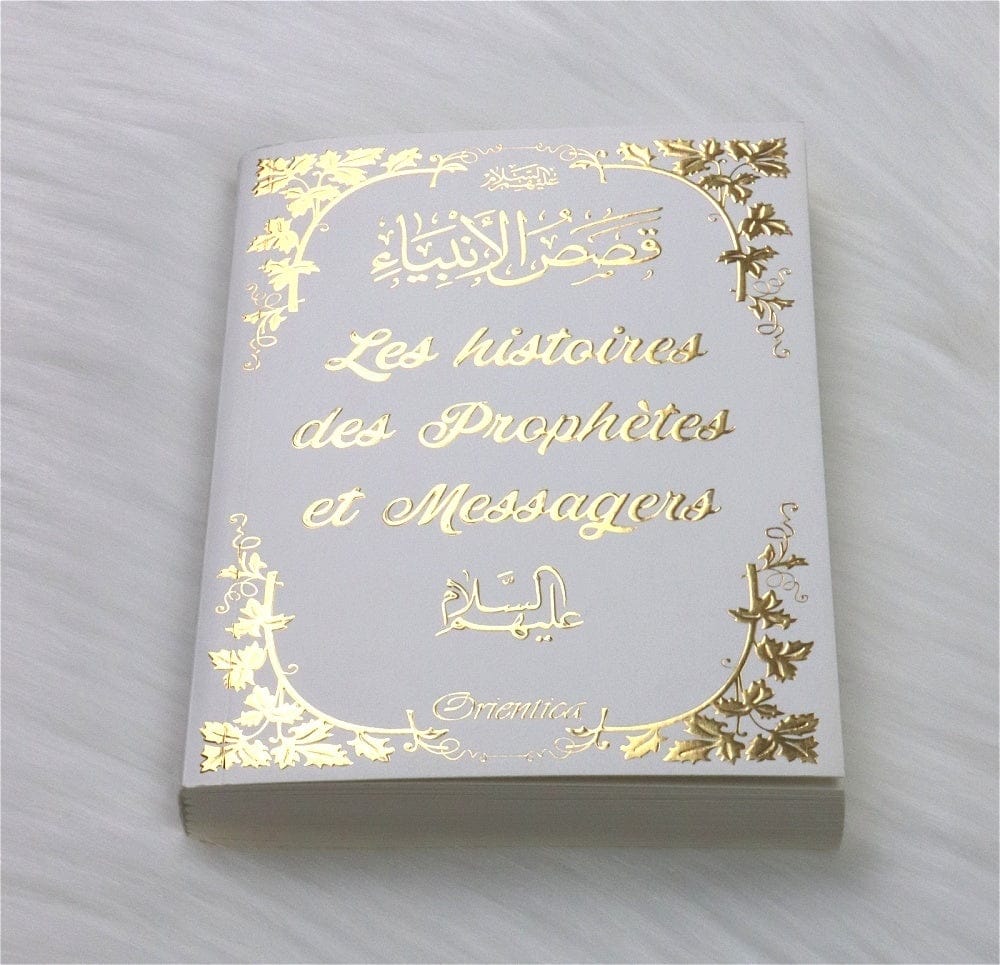 عليهم السلام
قَصَصُ الأَنْبِيَاءِ
Les histoires
des Prophètes
et Messagers
عليهم السَّلام
Orientica